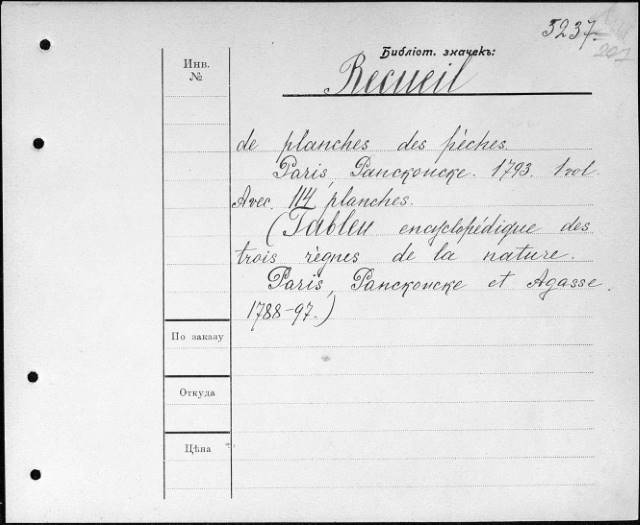 5237.
201
Библіот. значекъ:
Инв.
№
Recueil
de planches des pêches.
Paris, Panckoucke. 1793. 1 vol.
Avec. 114 planches.
(Tableu encyclopédique des
trois règnes de la nature.
Paris, Panckoucke et Agasse.
1788-97.)
По заказу
Откуда
Цѣна